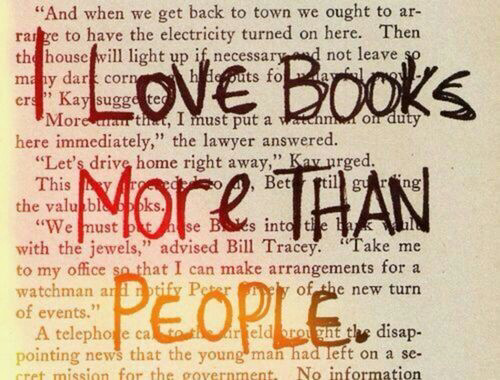 I LOVE BOOKS
MORE THAN
PEOPLE.
"And when we get back to town we ought to ar-
range to have the electricity turned on here. Then
the house will light up if necessary and not leave so
many dark hideouts for prowl-
ers," Kay suggested.
"More than that, I must put a watchman on duty
here immediately," the lawyer answered.
"Let's drive home right away," Kay urged.
This they proceeded to do, Betty still guarding
the valuable books.
"We must put these Bibles into the bank vault
with the jewels," advised Bill Tracey. "Take me
to my office so that I can make arrangements for a
watchman and notify Peter of the new turn
of events."
A telephone call to the airfield brought the disap-
pointing news that the young man had left on a se-
cret mission for the government. No information